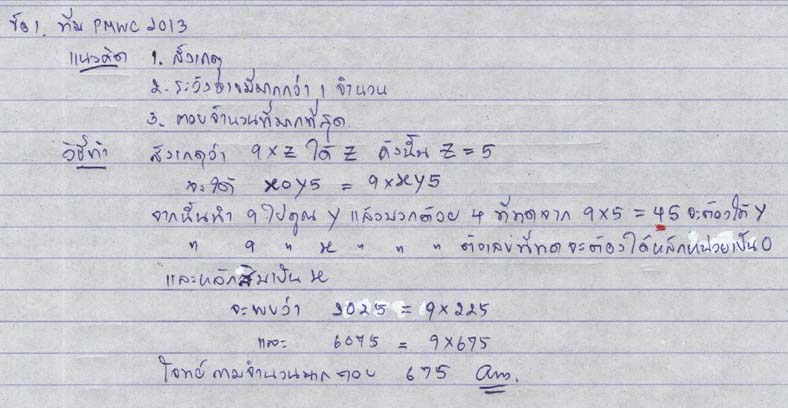 ข้อ 1. ทีม PMWC 2013
แนวคิด 1. สังเกตุ
2. ระวังอาจมีมากกว่า 1 จำนวน
3. ตอบจำนวนที่มากที่สุด
วิธีทำ สังเกตุว่า 9 × Z ได้ Z ดังนั้น Z = 5
จะได้ x0y5 = 9 × xy5
จากนั้นนำ 9 ไปคูณ y แล้วบวกด้วย 4 ที่ทดจาก 9×5 = 45 จะต้องได้ y
" 9 " x " " " ตัวเลขที่ทด จะต้องได้หลักหน่วยเป็น 0
และหลักสิบเป็น x
จะพบว่า 2025 = 9×225
และ 6075 = 9×675
โจทย์ถามจำนวนมาก ตอบ 675 Ans.